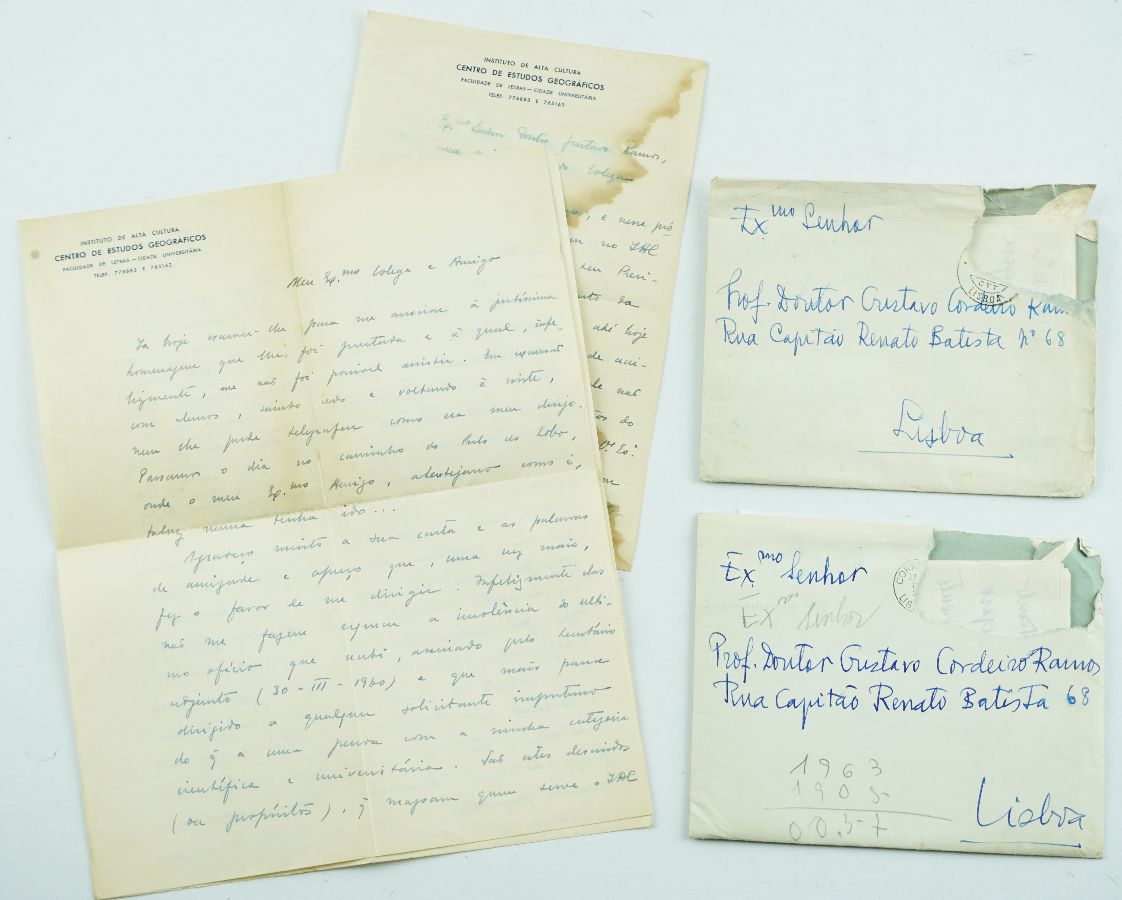 INSTITUTO DE ALTA CULTURA
CENTRO DE ESTUDOS GEOGRÁFICOS
FACULDADE DE LETRAS — CIDADE UNIVERSITÁRIA
TELEF. 778083 E 765162
Meu Ex.mo Colega e Amigo
Já hoje escrevi-lhe para me associar à justíssima
homenagem que lhe foi prestada e à qual, infe-
lizmente, me não foi possível assistir. Em excursão
com alunos, saindo cedo e voltando à noite,
nem lhe pude telegrafar como era meu desejo.
Passamos o dia no caminho do Pulo do Lobo,
onde o meu Ex.mo Amigo, alentejano como é,
talvez nunca tenha ido...
Agradeço muito a sua carta e as palavras
de amizade e apreço que, uma vez mais,
fez o favor de me dirigir. Infelizmente elas
não me fazem esquecer a insolência do últi-
mo ofício que recebi, assinado pelo secretário
adjunto (30-III-1960) e que mais parece
dirigido a qualquer solicitante importuno
do q̃ a uma pessoa com a minha categoria
científica e universitária. São estes descuidos
(ou propósitos), q̃ magoam quem serve o IAC
INSTITUTO DE ALTA CULTURA
CENTRO DE ESTUDOS GEOGRÁFICOS
FACULDADE DE LETRAS — CIDADE UNIVERSITÁRIA
TELEF. 778083 E 765162
Ex.mo Senhor Doutor Gustavo Ramos,
meu Colega
, e nesse pró
no IAC
seu Presi-
da
até hoje
de
não
do
V.ª Ex.ª
Ex.mo Senhor
CTT
LISBOA
Prof. Doutor Gustavo Cordeiro Ram
Rua Capitão Renato Batista nº 68
Lisboa
Ex.mo Senhor
Ex.mo Senhor
Prof. Doutor Gustavo Cordeiro Ramos
Rua Capitão Renato Batista 68
1963
1905
00.57
Lisboa